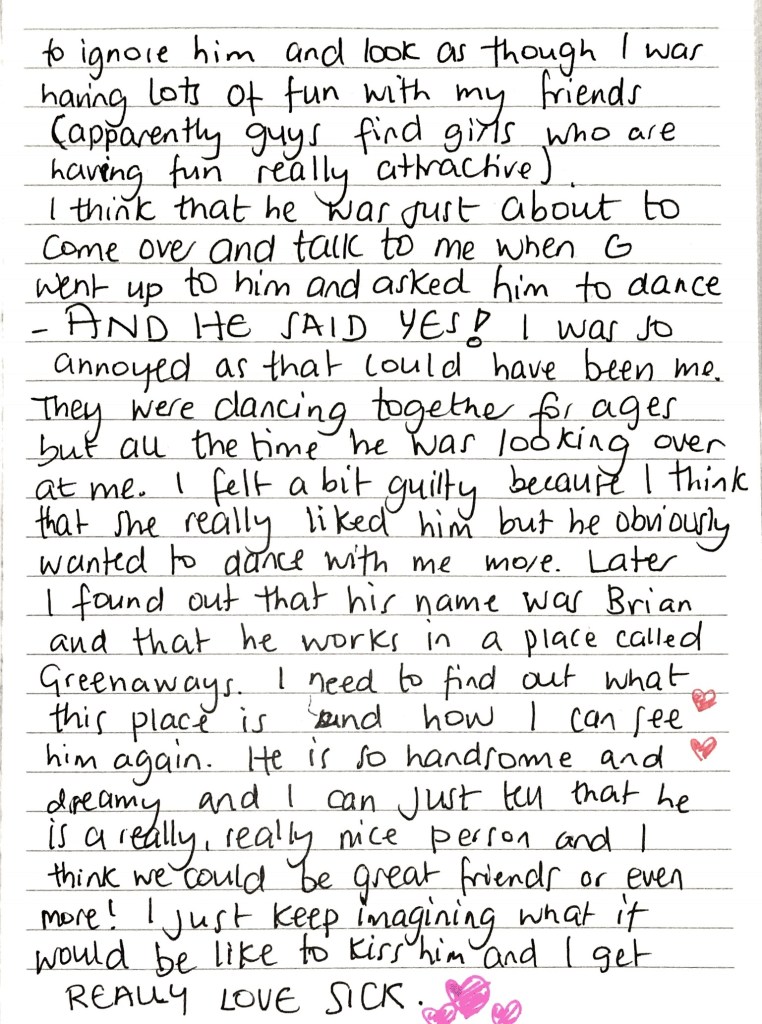 to ignore him and look as though I was
having lots of fun with my friends
(apparently guys find girls who are
having fun really attractive)
I think that he was just about to
come over and talk to me when G
went up to him and asked him to dance
- AND HE SAID YES! I was so
annoyed as that could have been me.
They were dancing together for ages
but all the time he was looking over
at me. I felt a bit guilty because I think
that she really liked him but he obviously
wanted to dance with me more. Later
I found out that his name was Brian
and that he works in a place called
Greenaways. I need to find out what
this place is and how I can see
him again. He is so handsome and
dreamy and I can just tell that he
is a really, really nice person and I
think we could be great friends or even
more! I just keep imagining what it
would be like to kiss him and I get
REALLY LOVE SICK.